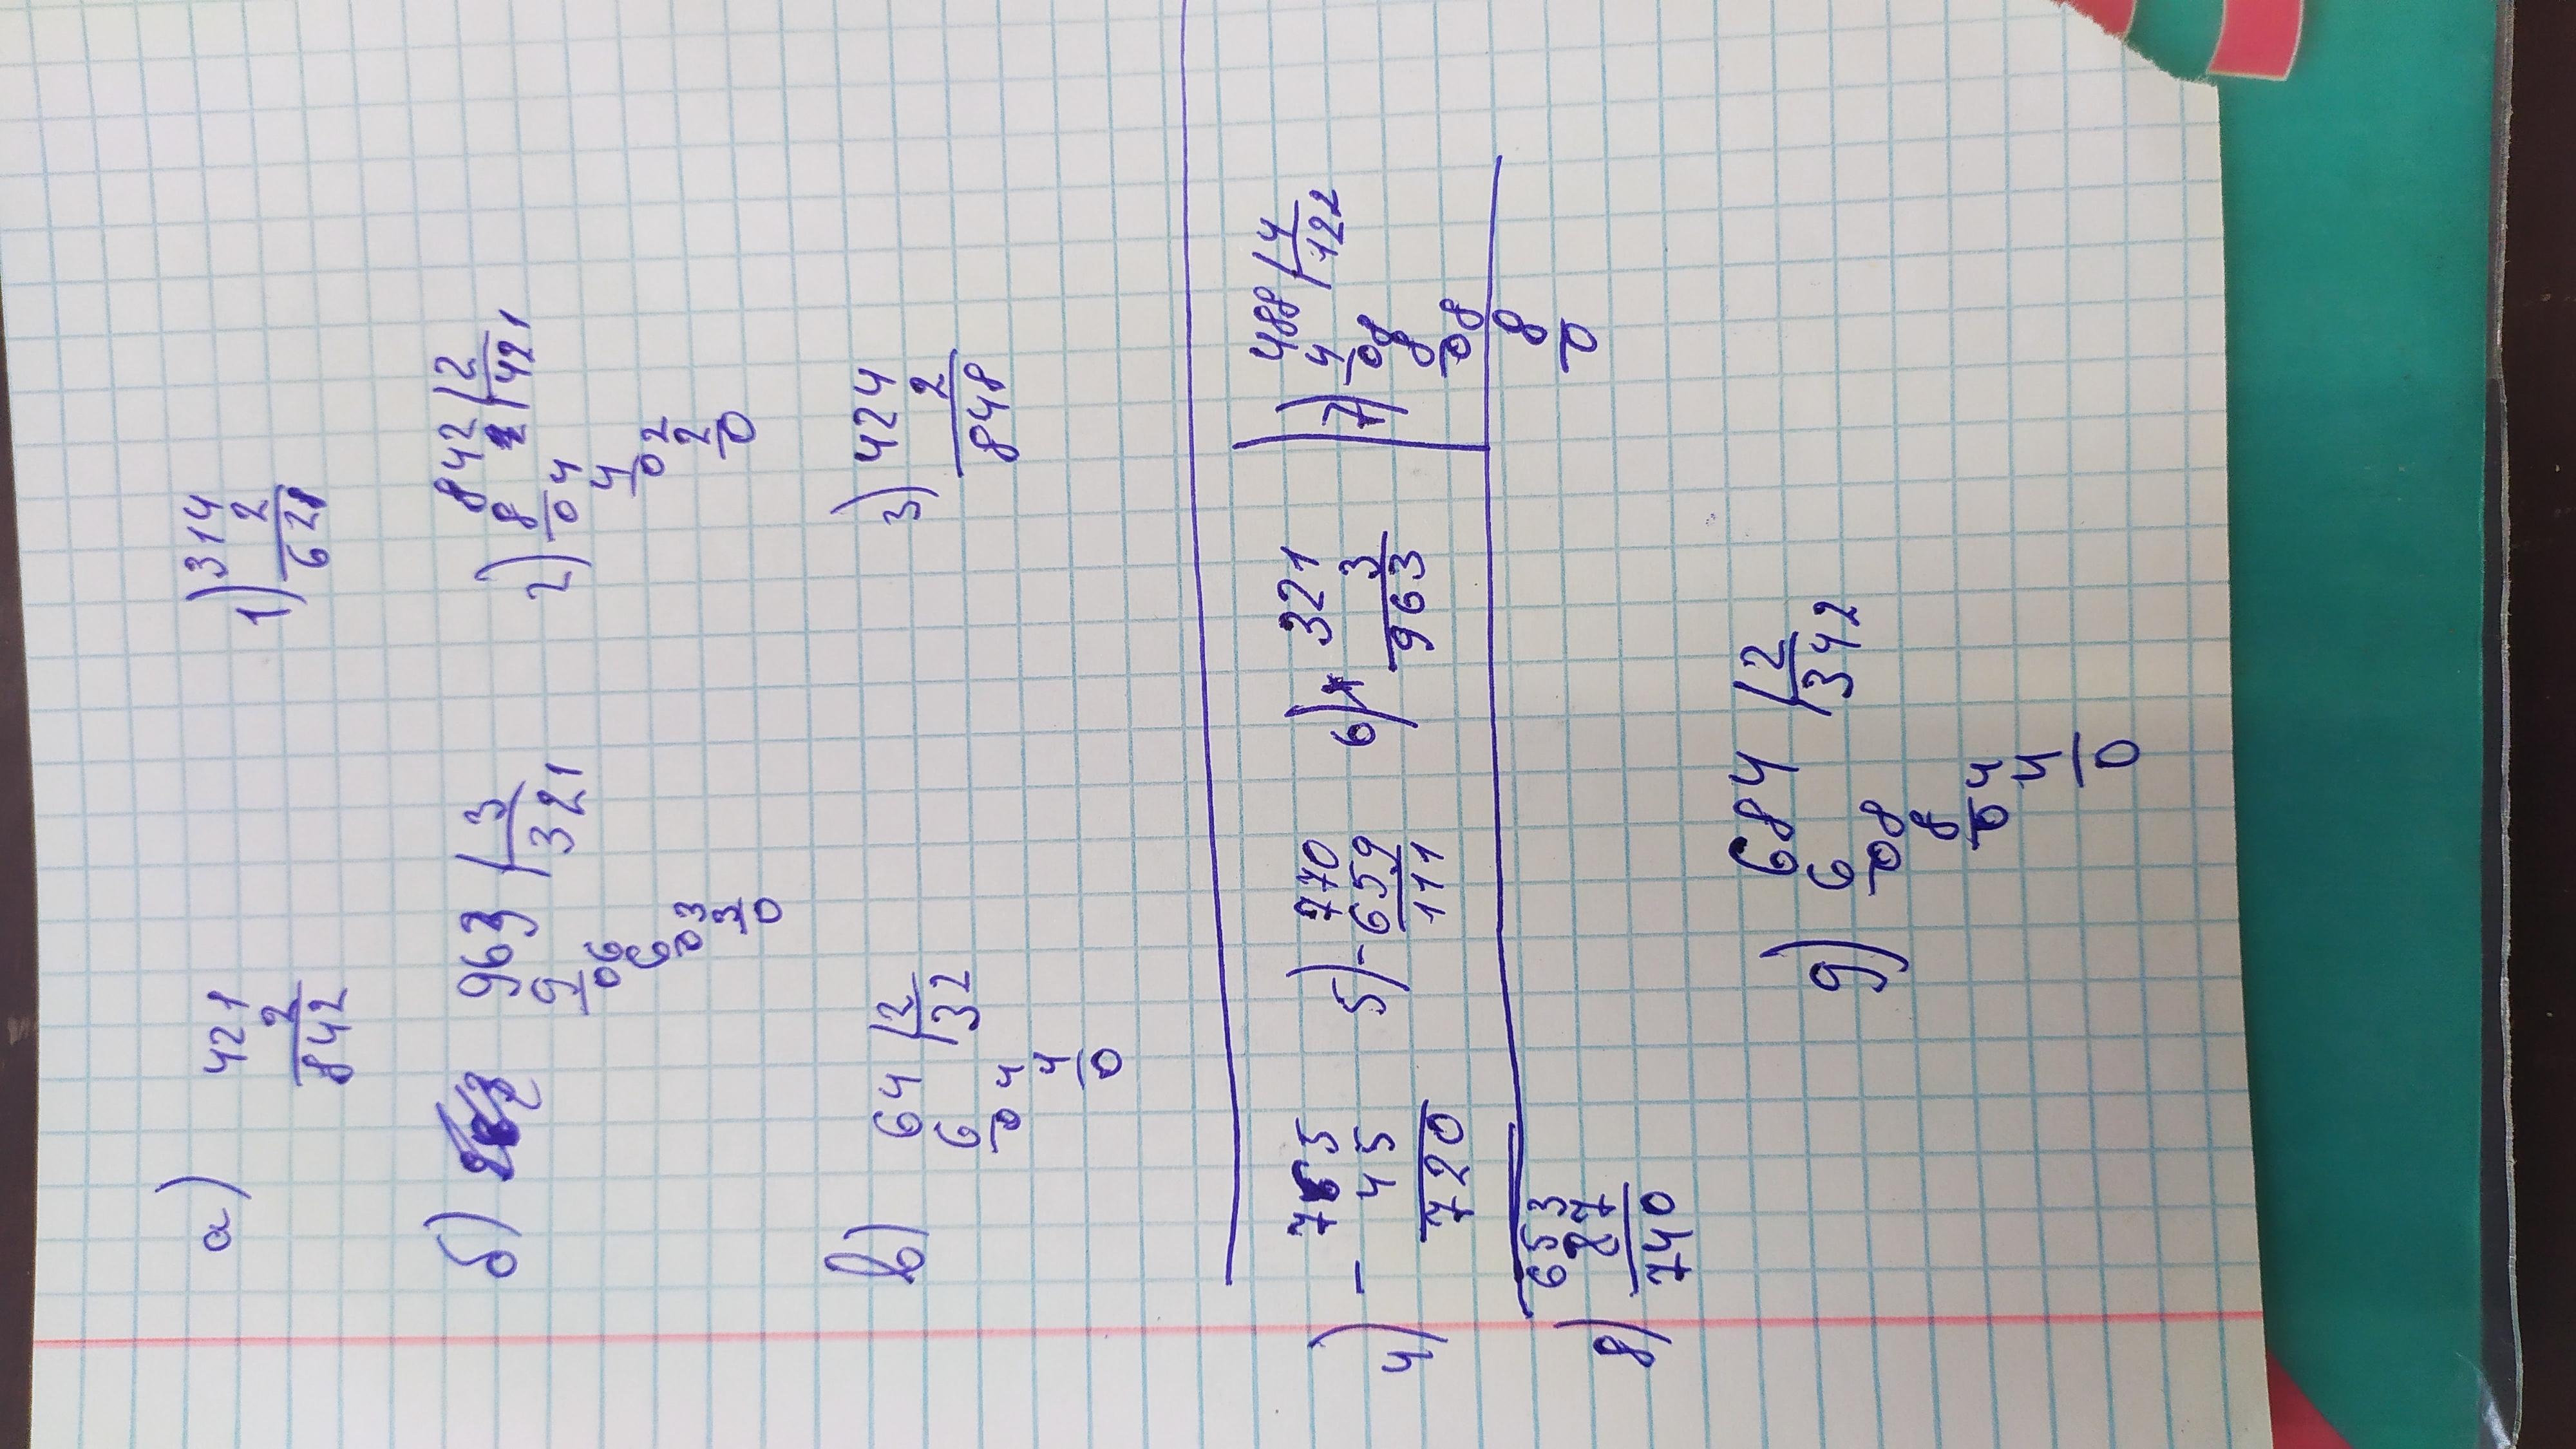 а) 421 1) 314
2 2
842 628
б) 963 | 3 2) 842 | 2
9 321 8 421
06 04
6 4
03 02
3 2
0 0
в) 64 | 2 3) 424
6 32 2
04 848
4
0
4) - 765 5) - 770 6) x 321 7) 488 | 4
45 659 3 4 122
720 111 963 08
8
08
8
0
8) 653 9) 684 | 2
87 6 342
740 08
8
04
4
0